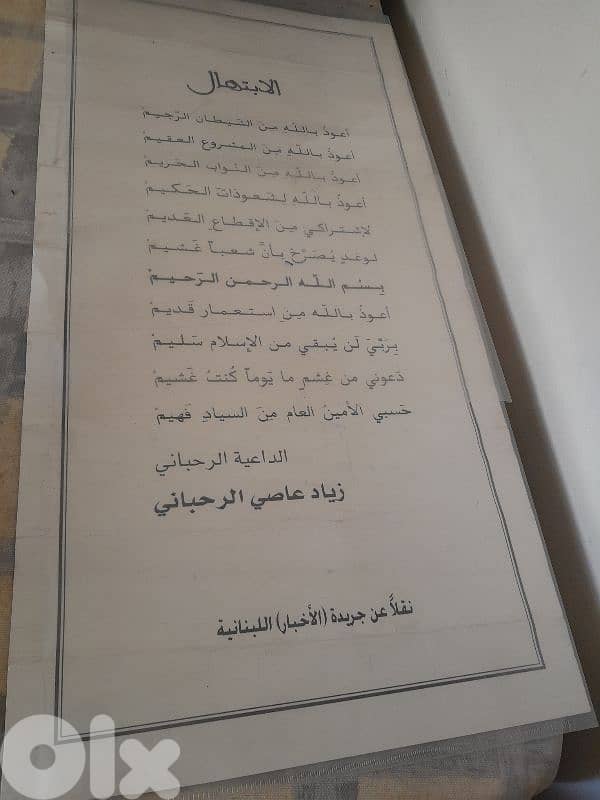 الابتهال
أعوذُ باللّهِ مِنَ الشيطانِ الرّجيمْ
أعوذُ باللّهِ من المشروع العقيمْ
أعوذُ باللّهِ مِنَ النُواب الحَريمْ
أعوذُ باللّهِ لشعوذاتِ الحَكيمْ
لإشتراكيٍ مِنَ الإقطاعِ القديمْ
لوغدٍ يُصَرّحُ بأنَّ شعباً غَشيمْ
بِسْم اللّه الرحمن الرّحيمْ
أعوذُ باللّه مِنَ استعمار قَديمْ
بِزَيّ لَن يُبقي من الإسلام سَليمْ
دَعوني من غِشمٍ ما يَوماً كُنتُ غَشيمْ
حَسبي الأمينُ العام مِنَ السيادِ فَهيمْ
الداعية الرحباني
زياد عاصي الرحباني
نقلاً عن جريدة (الأخبار) اللبنانية
olx